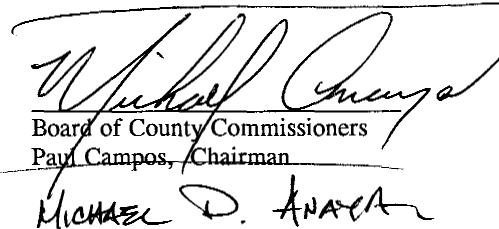 Michael Anaya
Board of County Commissioners
Paul Campos, Chairman
MICHAEL D. ANAYA